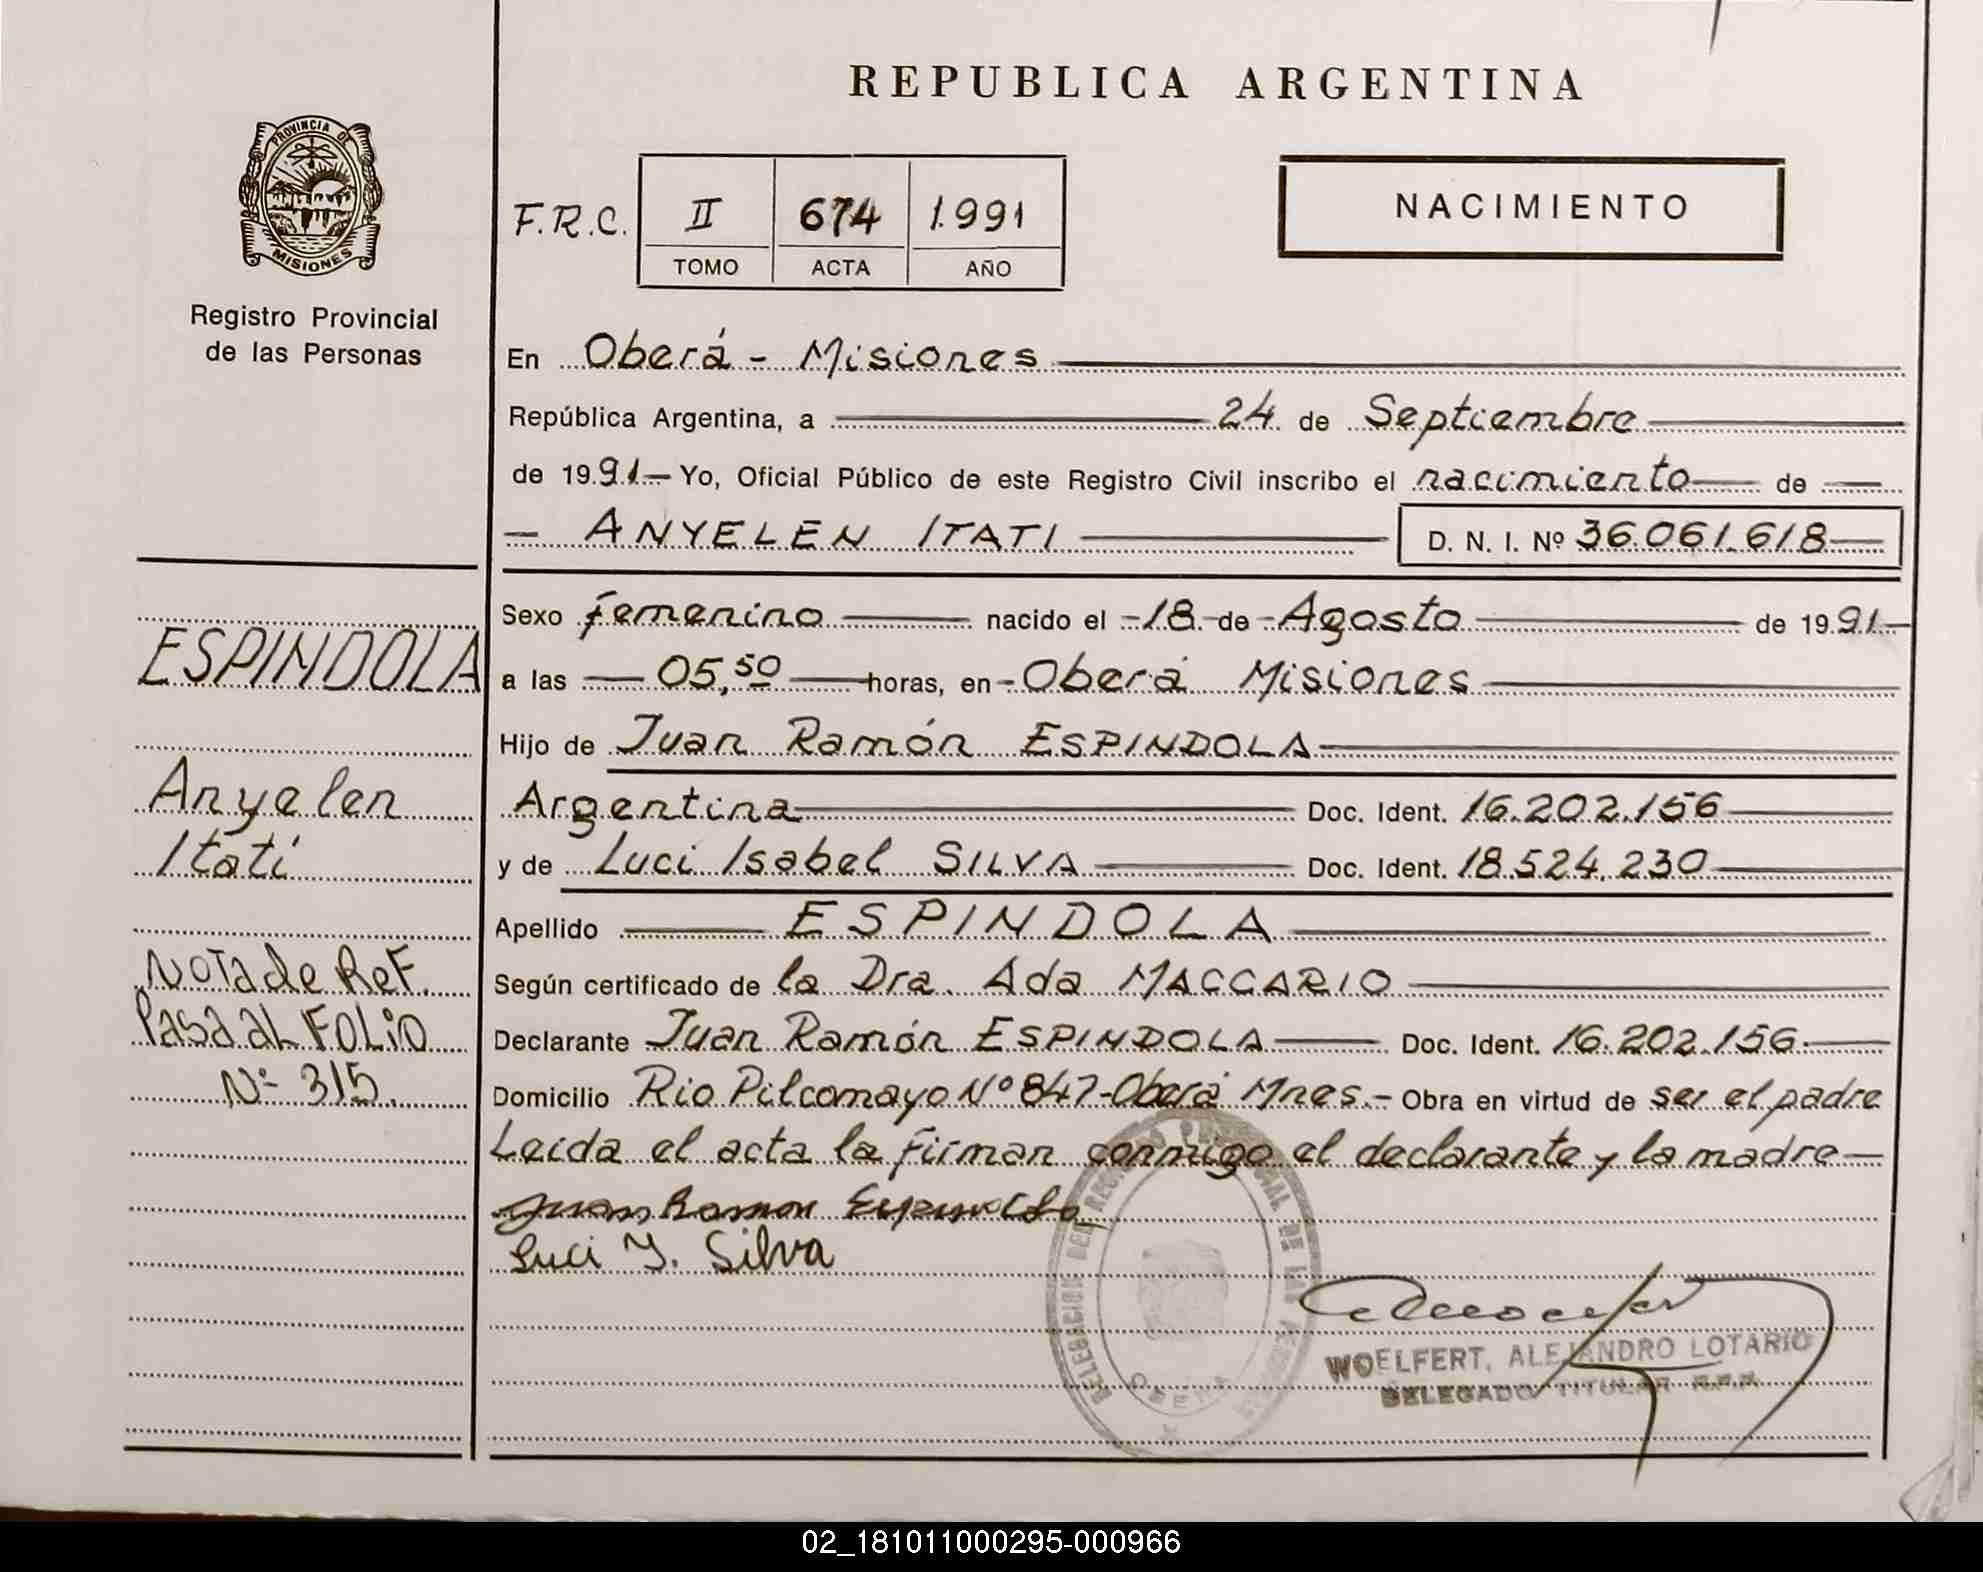 REPUBLICA ARGENTINA
PROVINCIA DE
MISIONES
Registro Provincial
de las Personas
F.R.C. II 674 1.991
TOMO ACTA AÑO
NACIMIENTO
En Oberá - Misiones
República Argentina, a 24 de Septiembre
de 1991- Yo, Oficial Público de este Registro Civil inscribo el nacimiento de
- ANYELEN ITATI D. N. I. Nº 36.061.618
Sexo femenino nacido el -18- de -Agosto de 1991-
a las 05,50 horas, en - Oberá Misiones
Hijo de Juan Ramón ESPINDOLA
Argentina Doc. Ident. 16.202.156
y de Luci Isabel SILVA Doc. Ident. 18.524.230
Apellido ESPINDOLA
Según certificado de la Dra. Ada MACCARIO
Declarante Juan Ramón ESPINDOLA Doc. Ident. 16.202.156
Domicilio Rio Pilcomayo Nº 847-Oberá Mnes.- Obra en virtud de ser el padre
Leida el acta la firman conmigo el declarante y la madre
Juan Ramon Espindola
Luci Y. Silva
ESPINDOLA
Anyelen
Itatí
NOTA de ReF.
Pasa aL FOLiO
Nº 315.
DELEGACION DEL REGISTRO PROVINCIAL DE LAS PERSONAS
OBERA
WOELFERT, ALEJANDRO LOTARIO
DELEGADO TITULAR R.P.P.
02_181011000295-000966